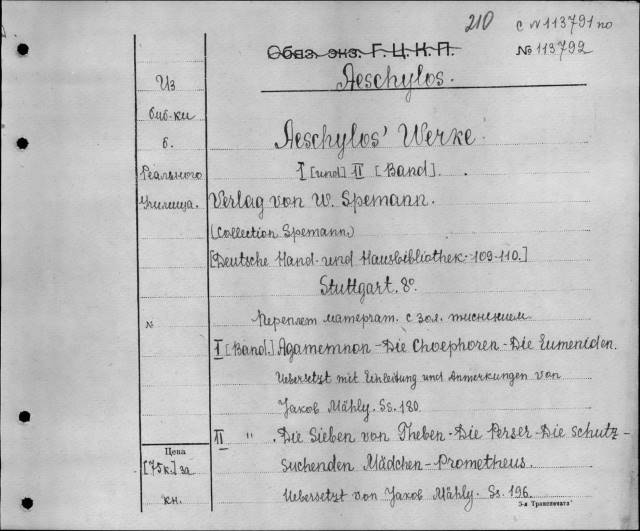 210
с N 113791 по
№ 113792
Обяз. экз. Г. Ц. К. П.
Aeschylos.
Из
биб-ки
б.
Реального
Училища.
Aeschylos' Werke.
I [und] II [Band].
Verlag von W. Spemann.
(Collection Spemann)
[Deutsche Hand- und Hausbibliothek- 109-110.]
Stuttgart. 8°.
№
Переплет матерчат. с зол. тиснением.
I [Band.] Agamemnon - Die Choephoren - Die Eumeniden.
Uebersetzt mit Einleitung und Anmerkungen von
Jakob Mähly. Ss. 180.
II " . Die Sieben von Theben - Die Perser - Die Schutz-
suchenden Mädchen - Prometheus.
Uebersetzt von Jakob Mähly. Ss. 196.
Цена
[75к.] за
кн.
3-я Транспечать